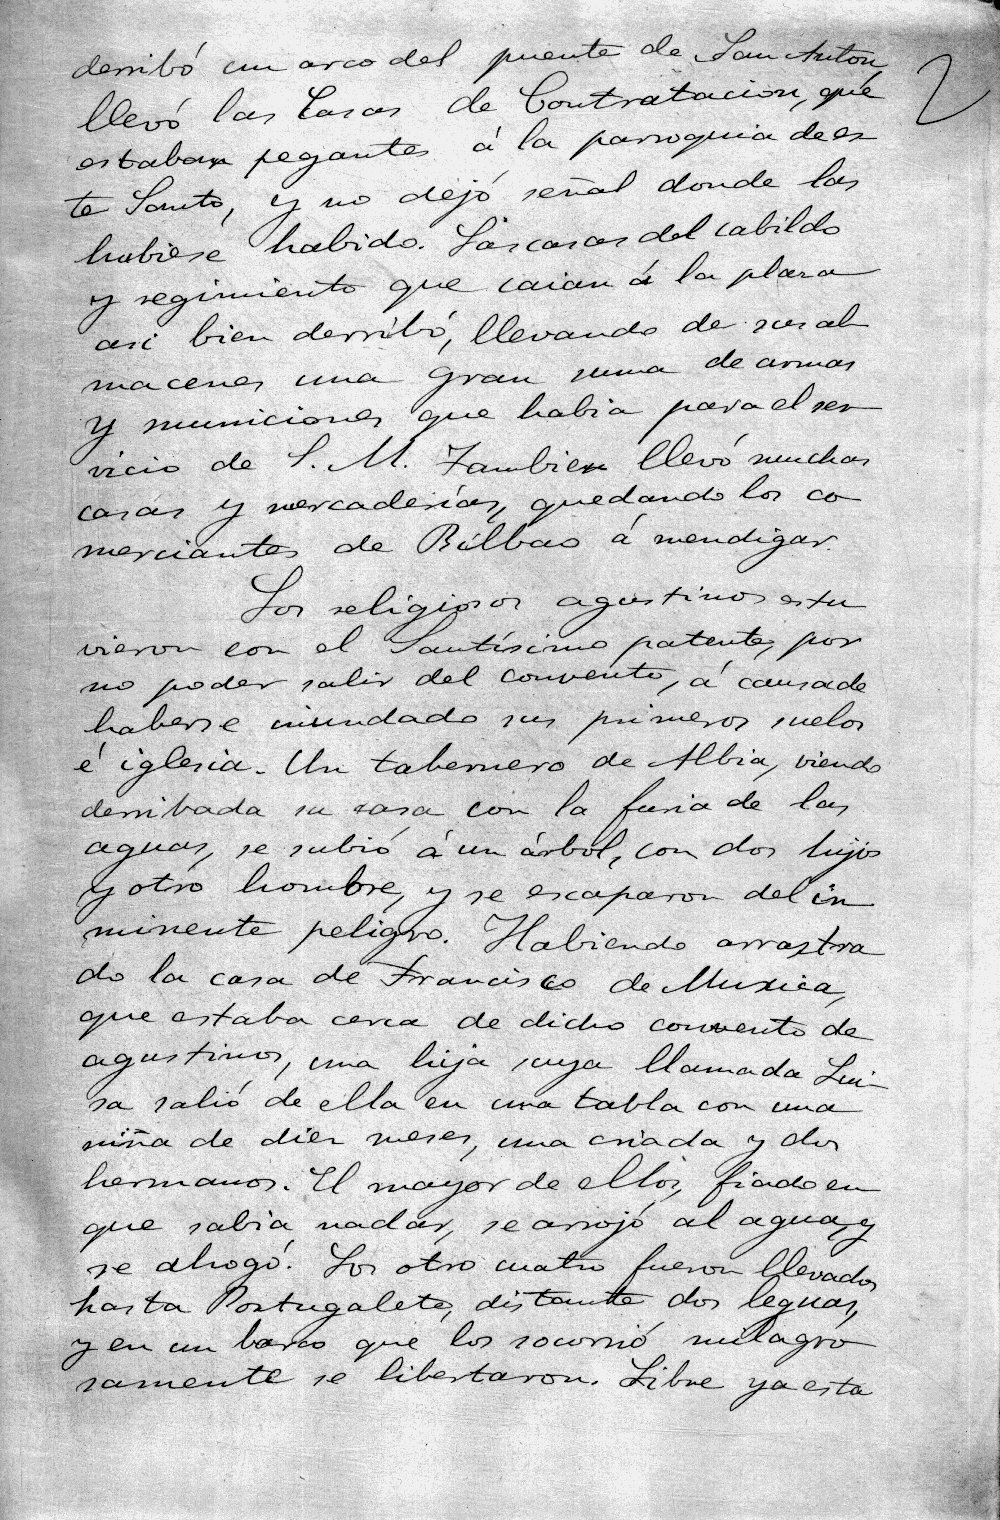 2
derribó un arco del puente de San Anton,
llevó las Casas de Contratacion, que
estaban pegantes á la parroquia de es
te Santo, y no dejó señal donde las
hubiese habido. Las casas del cabildo
y regimiento que caian á la plaza
asi bien derribó, llevando de sus al
macenes una gran suma de armas
y municiones que habia para el ser
vicio de S. M. Tambien llevó muchas
casas y mercaderías, quedando los co
merciantes de Bilbao á mendigar.
Los religiosos agustinos estu
vieron con el Santísimo patente, por
no poder salir del convento, á causa de
haberse inundado sus primeros suelos
é iglesia. Un tabernero de Albia, viendo
derribada su casa con la furia de las
aguas, se subió á un árbol, con dos hijos
y otro hombre, y se escaparon del in
minente peligro. Habiendo arrastra
do la casa de Francisco de Muxica,
que estaba cerca de dicho convento de
agustinos, una hija suya llamada Lui
sa salió de ella en una tabla con una
niña de diez meses, una criada y dos
hermanos. El mayor de ellos, fiado en
que sabia nadar, se arrojó al agua, y
se ahogó. Los otro cuatro fueron llevados
hasta Portugalete, distante dos leguas,
y en un barco que los socorrió milagro
samente se libertaron. Libre ya esta